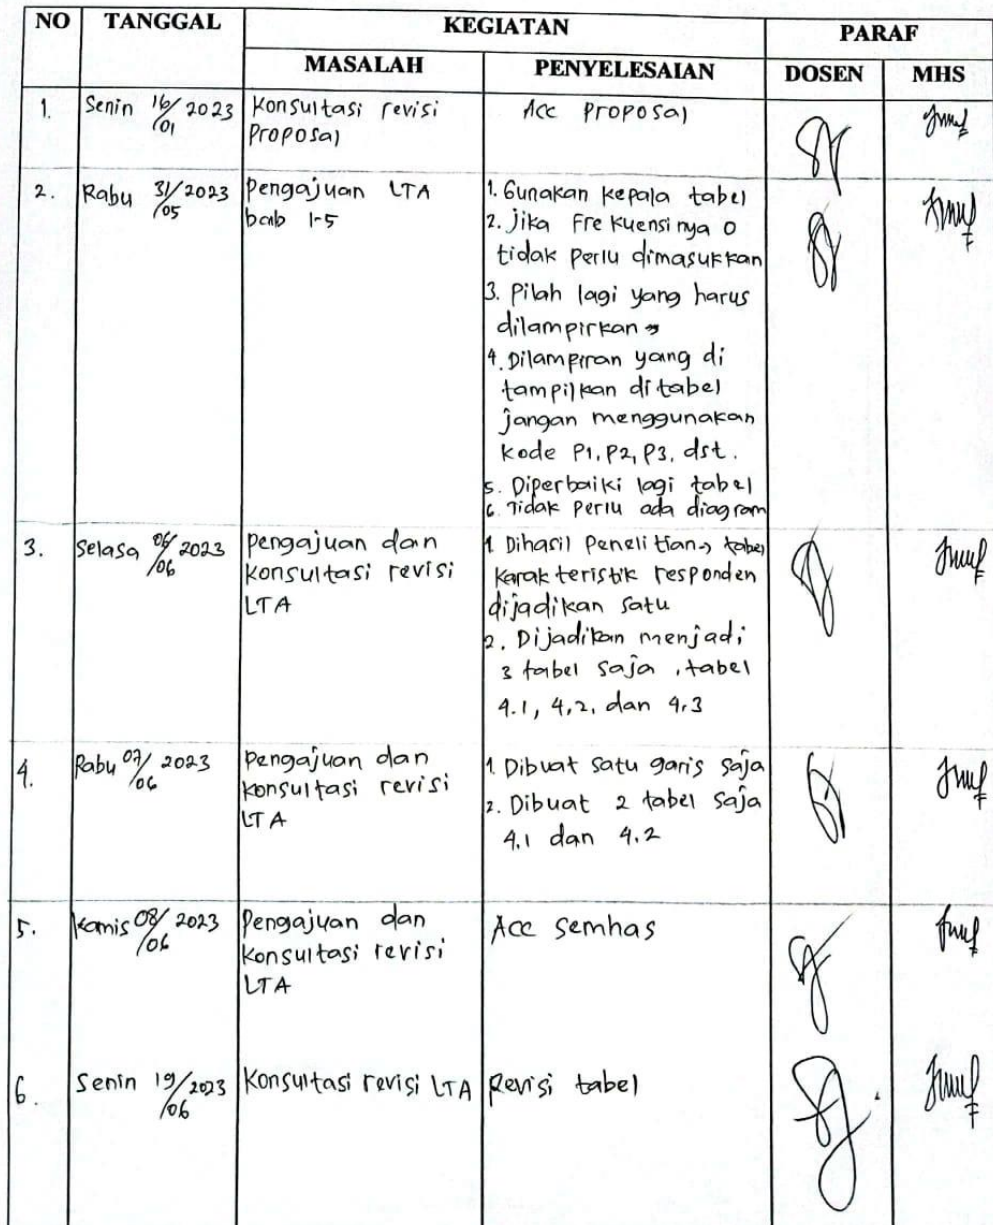 NO TANGGAL KEGIATAN PARAF
MASALAH PENYELESAIAN DOSEN MHS
1. Senin 16/01 2023 Konsultasi revisi Acc Proposal
Proposal
2. Rabu 31/05 2023 Pengajuan LTA
bab 1-5
1. Gunakan kepala tabel
2. Jika Frekuensinya 0
tidak perlu dimasukkan
3. Pilah lagi yang harus
dilampirkan
4. Dilampiran yang di
tampilkan ditabel
jangan menggunakan
kode P1, P2, P3, dst.
5. Diperbaiki lagi tabel
6. Tidak perlu ada diagram
3. Selasa 06/06 2023 Pengajuan dan
konsultasi revisi
LTA
1. Dihasil Penelitian → tabel
karakteristik responden
dijadikan satu
2. Dijadikan menjadi
3 tabel saja, tabel
4.1, 4,2, dan 4.3
4. Rabu 07/06 2023 Pengajuan dan
konsultasi revisi
LTA
1. Dibuat satu garis saja
2. Dibuat 2 tabel saja
4.1 dan 4.2
5. Kamis 08/06 2023 Pengajuan dan
konsultasi revisi
LTA
Acc semhas
6. Senin 19/06 2023 Konsultasi revisi LTA Revisi tabel